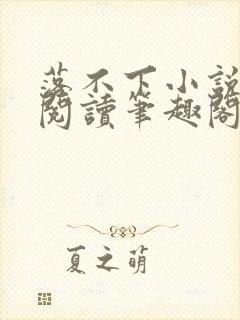 落不下小說
閱讀筆趣閣
夏之萌